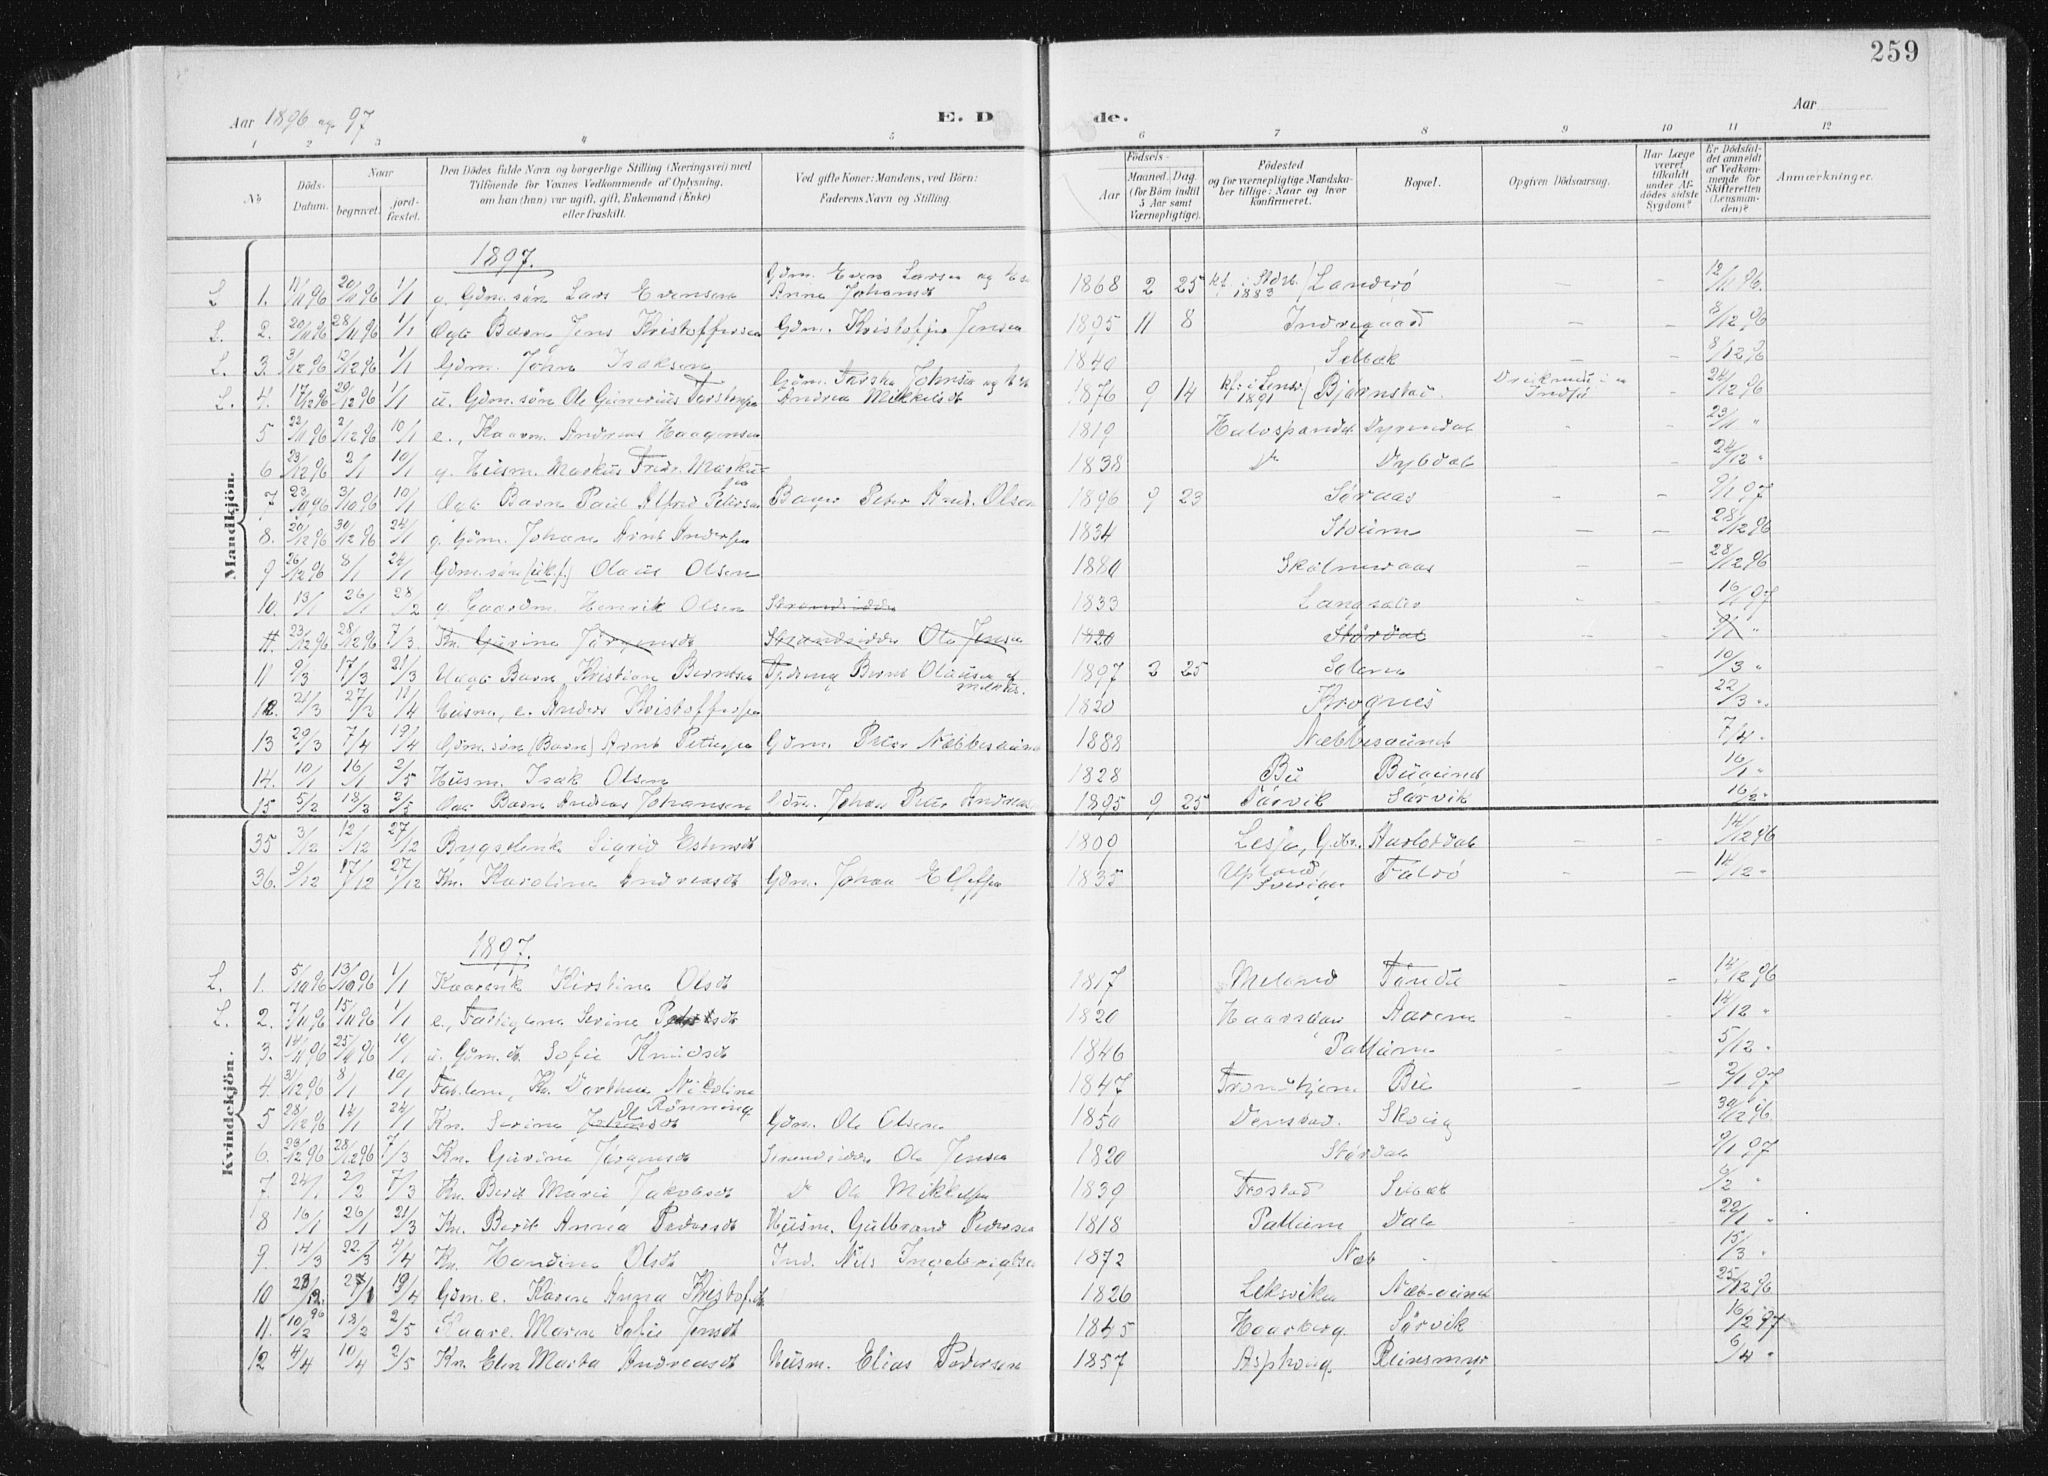 259
Aar 1896 og 97
E. D
de.
Aar
1 2 3 4 5 6 7 8 9 10 11 12
No
Döds-Datum.
Naar
begravet.
jord-fæstet.
Den Dödes fulde Navn og borgerlige Stilling (Næringsvei) med
Tilföiende for Voxnes Vedkommende af Oplysning,
om han (hun) var ugift, gift, Enkemand (Enke)
eller fraskilt.
Ved gifte Koner: Mandens, ved Börn:
Faderens Navn og Stilling.
Födsels-
Aar
Maaned. Dag.
(for Börn indtil
5 Aar samt
Værnepligtige).
Födested
og for værnepligtige Mandska-
ber tillige: Naar og hvor
konfirmeret.
Bopæl.
Opgiven Dödsaarsag.
Har Læge
været
tilkaldt
under Af-
dødes sidste
Sygdom?
Er Dödsfal-
det anmeldt
af Vedkom-
mende for
Skifteretten
(Lensman-
den)?
Anmærkninger.
Mandkjön.
1897.
Gdm. Even Larsen og
L 1. 11/11 96 20/11 96 1/1 g. Gdm. søn Lars Evensen Anne Johansdt 1868 2 25 1883 Landrö - - 12/11 96.
L. 2. 20/11 96 28/11 96 1/1 Ægte Barn Jens Kristoffersen Gdm. Kristoffer Jensen 1895 11 8 Indregaard - - 8/12 96
L. 3. 3/12 96 12/12 96 1/1 Gdm. John Isaksen 1840 Selbæk - - 8/12 96
L. 4. 17/12 96 29/12 96 1/1 u. Gdm. søn Ole Gunerius Torstensen Andrea Mikkelsdt 1876 9 14 1891 Bjørnstad. - 24/12 96
5 22/11 96 2/12 96 10/1 e., Kaarm. Andreas Haagensen 1819 Dyrendal - - 23/11 "
6 23/12 96 2/1 10/1 g. Husm. Markus Fredr. Markus- 1838 Do Dybdal - - 24/12 "
7 23/10 96 31/10 96 10/1 Ægte Barn Paul Alfred Petersen Bager Peter And. Olsen 1896 9 23 Søraas - - 9/1 97
8. 20/12 96 30/12 96 24/1 g. Gdm. Johan Arnt Andersen 1834 Steum - - 28/12 96
9 26/12 96 8/1 24/1 Gdm. søn (uk.f.) Olaus Olsen 1880 Skalmeraas - - 28/12 96
10. 13/1 26/1 28/2 g. Gaardm. Henrik Olsen Strandsidder 1833 Langsæter - 16/1 97
11. 23/12 96 28/12 96 7/3. Kn. Gurine Jörgensdt Strandsidder Ole Jensen 1820 Stördal 9/1 "
11 9/3 17/3 21/3 Uægte Barn Kristian Berntsen Bernt Olausen 1897 3 25 Solem - 10/3 "
12. 21/3 27/3 11/4 Husm., e. Anders Kristoffersen 1820 Krognes 22/3 "
13 29/3 7/4 19/4 Gdm. søn (Barn) Arnt Petersen Gdm. Peter Næbbesund 1888 Næbbesund 7/4 "
14. 10/1 16/1 2/5 Husm. Isak Olsen 1828 Bu Busund 16/1 "
15 5/2 18/3 2/5 Ægte Barn Andreas Johansen Gdm. Johan Peter Andreas 1895 9 25 Sørvik Sørvik 16/2 "
Kvindekjön.
35 3/12 12/12 27/12 Bygdslenk Sigrid Estensdt 1809 Lesje, Gdbr. - - 14/12 96
36. 9/12 17/12 27/12 Kn. Karoline Andreasdt Gdm. Johan Ellefsen 1835 Upland, Sverige Falö - - 14/12 "
1897.
L. 1. 5/10 96 13/10 96 1/1 Kaarenk Kirstine Olsdt 1817 Meland Tandu - - 14/12 96
L. 2. 7/11 96 15/11 96 1/1 e., Fattiglem Serine Pedersdt 1820 Haarsdar Aarem - - 14/12 "
3. 14/11 96 25/11 96 10/1 u. Gdm. dt. Sofie Knudsdt 1846 Pallum - - 5/12 "
4. 31/12 96 8/1 10/1 Fab.lem, Kn. Dorthea Nikoline Rönning 1847 Trondhjem Bu - - 2/1 97
5 28/12 96 14/1 24/1 Kn. Serine Johansdt Ol Gdm. Ole Olsen 1850 Demstad. Skvig - 30/12 96
6. 23/12 96 28/12 96 7/3 Kn. Gurine Jörgensdt Strandsidder Ole Jensen 1820 Stördal - 9/1 97
7. 24/1 2/2 7/3 Kn. Berit Marie Jakobsdt Do Ole Mikkelsen 1839 Frostad Selbæk 6/2 "
8 16/1 26/1 21/3 Kn. Berit Anna Pedersdt Husm. Gulbrand Pedersen 1818 Pallum Dale - 22/1 "
9. 14/3 22/3 4/4 Kn. Handine Olsdt Ind. Nils Ingebrigtsen 1872 Næb 15/3 "
10 28/12 96 27/1 19/4 Gdm. e. Karen Anna Kristofdt. 1826 Leksviken Næbesund 25/12 96
11. 10/2 18/2 2/5 Kaare. Maren Sofie Jensdt 1845 Haarberg. Sørvik 16/2 97
12 4/4 10/4 2/5 Kn. Elen Marta Andreasdt Husm. Elias Pedersen 1857 Asphaug. Reinsmyr 6/4 "